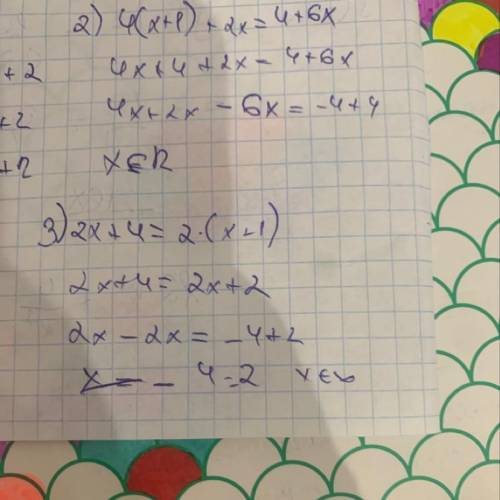 2) 4(x+1) + 2x = 4+6x
+ 2
4x+4 + 2x = 4+6x
+2
4x+2x - 6x = -4+4
x∈R
3) 2x+4 = 2·(x+1)
2x+4 = 2x+2
2x - 2x = -4+2
4=2